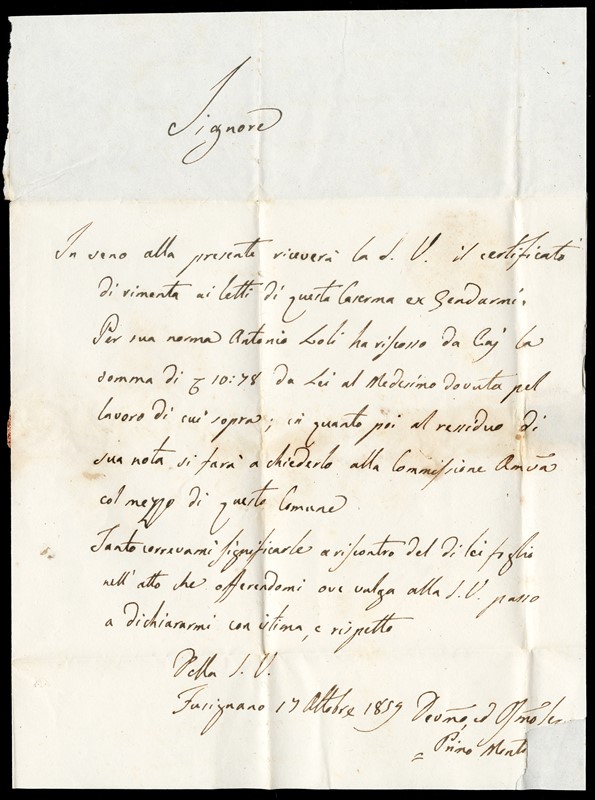 Signore
In seno alla presente riceverà la S. V. il certificato
di rimonta ai letti di questa Caserma ex Gendarmi.
Per sua norma Antonio Loli ha riscosso da la
somma di 10:78 da Lei al Medesimo dovuta pel
lavoro di cui sopra; in quanto poi al residuo di
sua nota si farà a chiederlo alla Commissione Amva
col mezzo di questo Comune
Tanto correvami significarle a riscontro del di lei foglio
nell'atto che offerendomi ove valga alla S. V. passo
a dichiararmi con istima, e rispetto
Della S. V.
Fusignano 17 Ottobre 1859 Devmo, ed
Primo